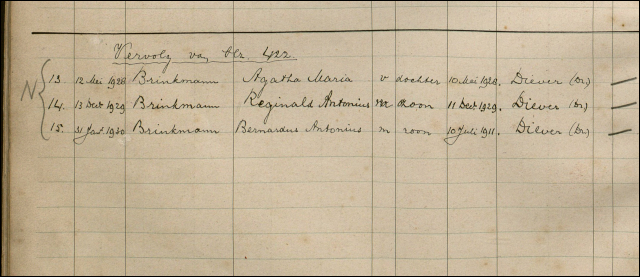 Vervolg van blz. 422
N 13. 12 Mei 1928 Brinkmann Agatha Maria v dochter 10 Mei 1928. Diever (Dr.) —
14. 13 Dec 1929 Brinkmann Reginald Antonius m zoon 11 Dec 1929. Diever (Dr.) —
15. 31 Jan. 1930 Brinkmann Bernardus Antonius m zoon 10 Juli 1911. Diever (Dr.) —